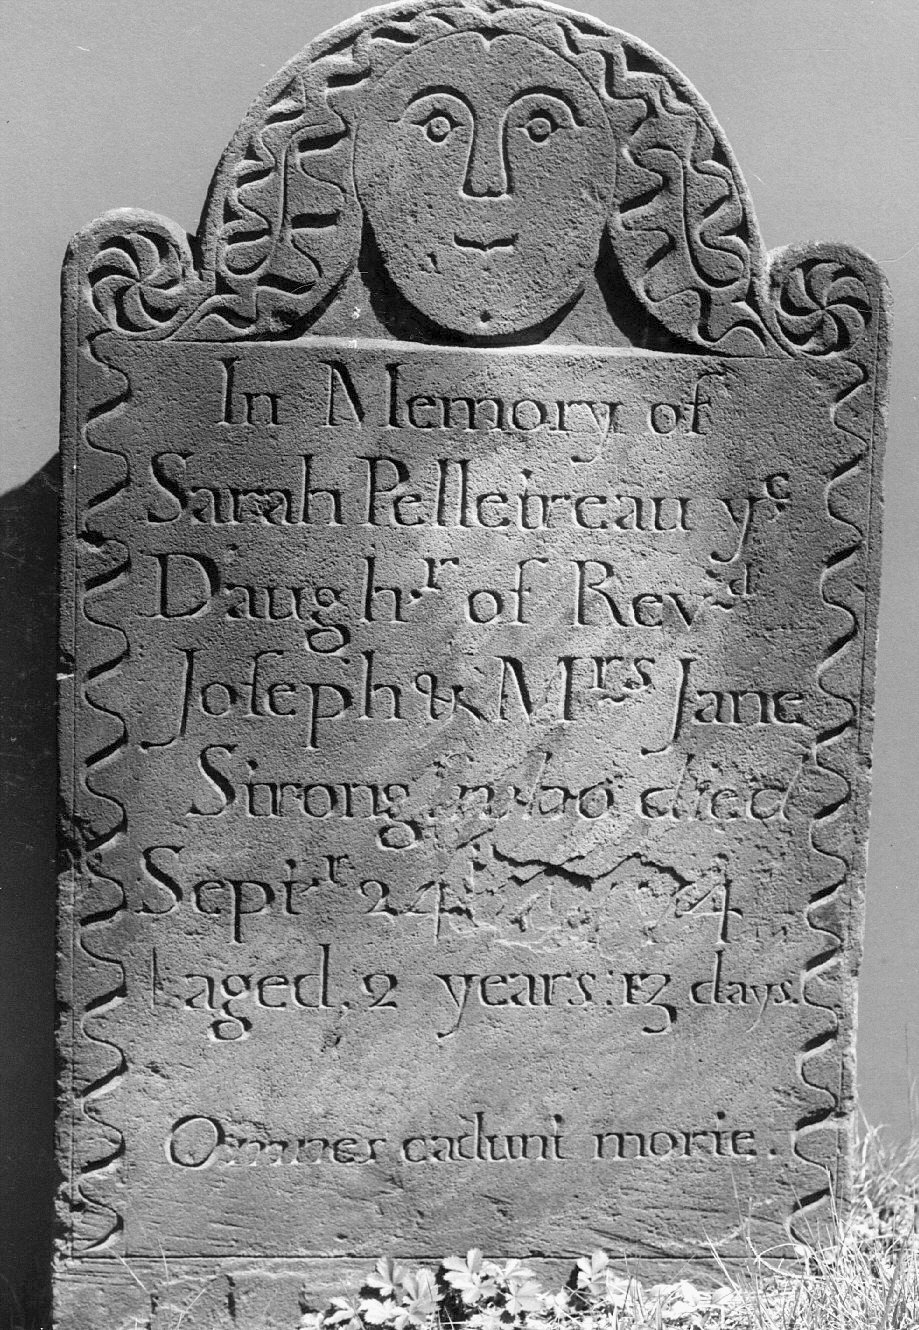 In Memory of
Sarah Pelletreau yᵉ
Daugh.ʳ of Rev.ᵈ
Joſeph & Mʳˢ Jane
Strong, who died
Sept.ʳ 24
aged, 2 years: 13 days
Omnes cadunt morte.